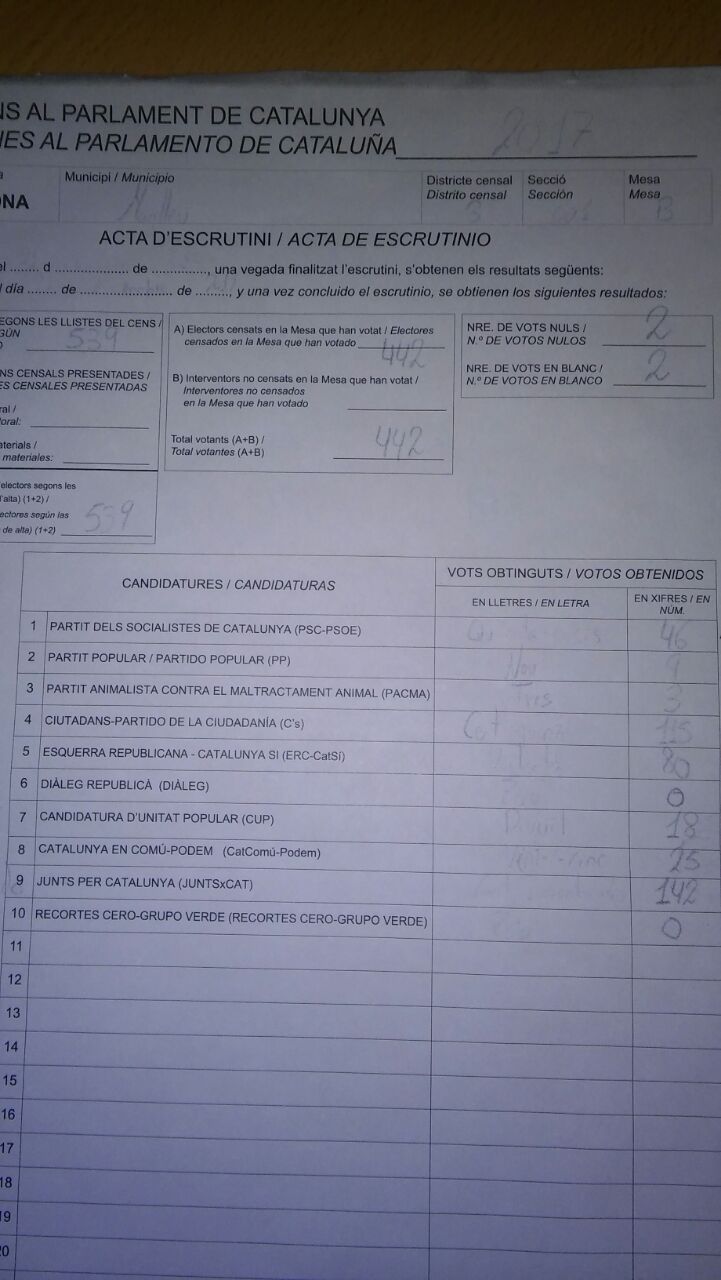 NS AL PARLAMENT DE CATALUNYA
NES AL PARLAMENTO DE CATALUÑA 2017
a Municipi / Municipio Districte censal Secció Mesa
Distrito censal Sección Mesa
ONA B
ACTA D'ESCRUTINI / ACTA DE ESCRUTINIO
el ........ d .................... de ..............., una vegada finalitzat l'escrutini, s'obtenen els resultats següents:
l día ........ de ......................... de ........., y una vez concluido el escrutinio, se obtienen los siguientes resultados:
EGONS LES LLISTES DEL CENS /
GÚN
O 539
NS CENSALS PRESENTADES /
ES CENSALES PRESENTADAS
ral /
oral:
aterials /
materiales:
electors segons les
l'alta) (1+2) /
ectores según las
de alta) (1+2) 539
A) Electors censats en la Mesa que han votat / Electores
censados en la Mesa que han votado 442
B) Interventors no censats en la Mesa que han votat /
Interventores no censados
en la Mesa que han votado
Total votants (A+B) /
Total votantes (A+B) 442
NRE. DE VOTS NULS /
N.º DE VOTOS NULOS 2
NRE. DE VOTS EN BLANC /
N.º DE VOTOS EN BLANCO 2
CANDIDATURES / CANDIDATURAS VOTS OBTINGUTS / VOTOS OBTENIDOS
EN LLETRES / EN LETRA EN XIFRES / EN
NÚM.
1 PARTIT DELS SOCIALISTES DE CATALUNYA (PSC-PSOE) 46
2 PARTIT POPULAR / PARTIDO POPULAR (PP) Nou 9
3 PARTIT ANIMALISTA CONTRA EL MALTRACTAMENT ANIMAL (PACMA) Tres 3
4 CIUTADANS-PARTIDO DE LA CIUDADANÍA (C's) 115
5 ESQUERRA REPUBLICANA - CATALUNYA SI (ERC-CatSí) 80
6 DIÀLEG REPUBLICÀ (DIÀLEG) 0
7 CANDIDATURA D'UNITAT POPULAR (CUP) 18
8 CATALUNYA EN COMÚ-PODEM (CatComú-Podem) 25
9 JUNTS PER CATALUNYA (JUNTSxCAT) 142
10 RECORTES CERO-GRUPO VERDE (RECORTES CERO-GRUPO VERDE) 0
11
12
13
14
15
16
17
18
19
20